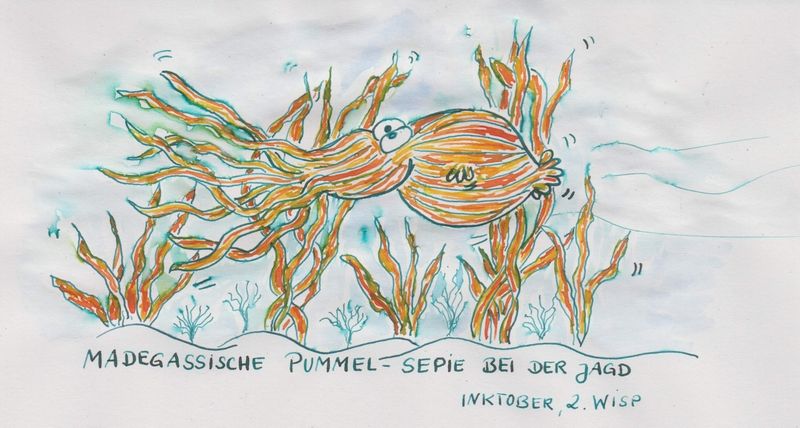 MADEGASSISCHE PUMMEL-SEPIE BEI DER JAGD
INKTOBER, 2. WISP